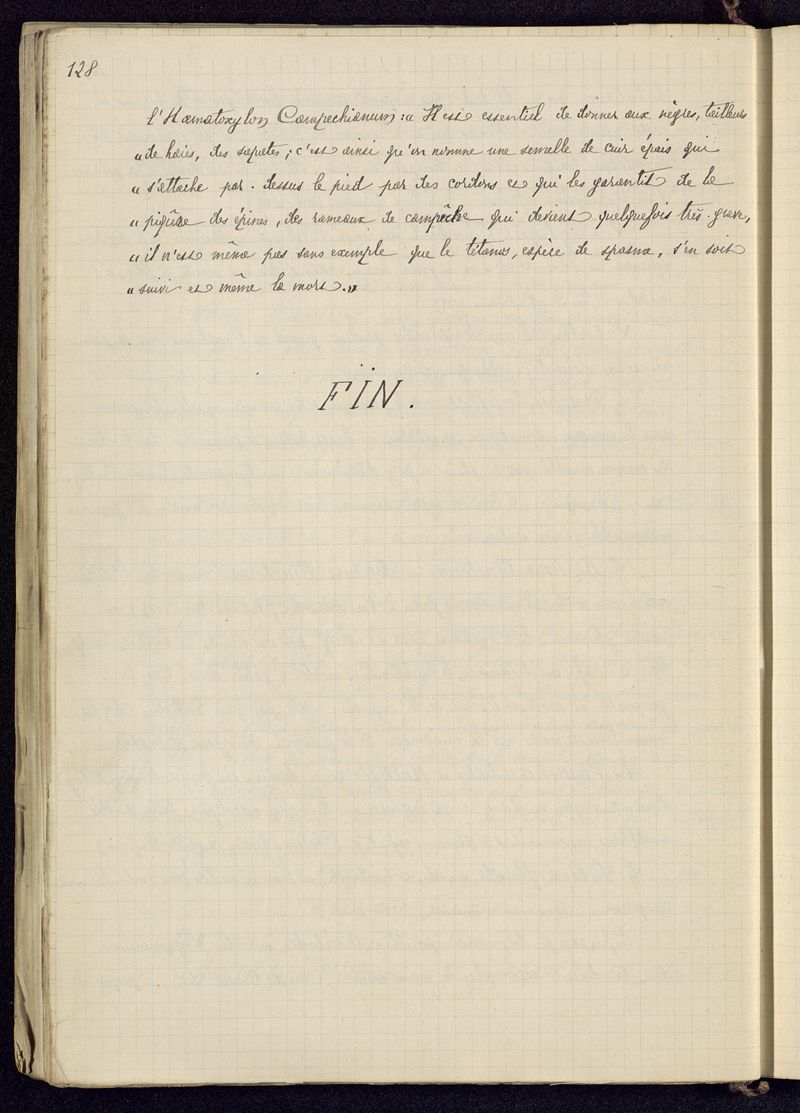 128
l'Hæmatoxylon Campechianum : « Il est essentiel de donner aux nègres, tailleurs
« de haies, des sapates ; c'est ainsi qu'on nomme une semelle de cuir épais qui
« s'attache par-dessus le pied par des cordons et qui les garantit de la
« piqûre des épines, des rameaux de campêche qui devient quelquefois très-grave,
« il n'est même pas sans exemple que le tétanos, espèce de spasme, s'en soit
« suivi et même la mort. »
FIN.